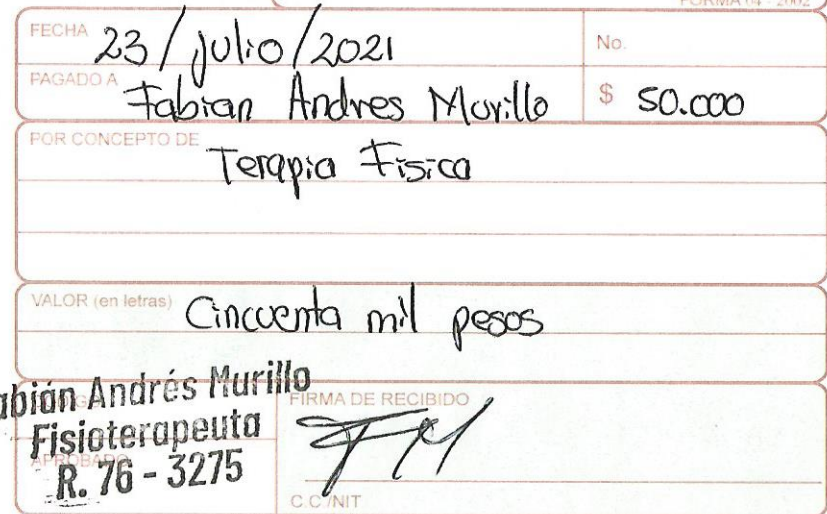 FORMA 04 - 2002
FECHA 23/julio/2021 No.
PAGADO A Fabian Andres Murillo $ 50.000
POR CONCEPTO DE Terapia Fisica
VALOR (en letras) Cincuenta mil pesos
abián Andrés Murillo
FIRMA DE RECIBIDO
Fisioterapeuta
FM
APROBADO
R. 76 - 3275
C.C./NIT